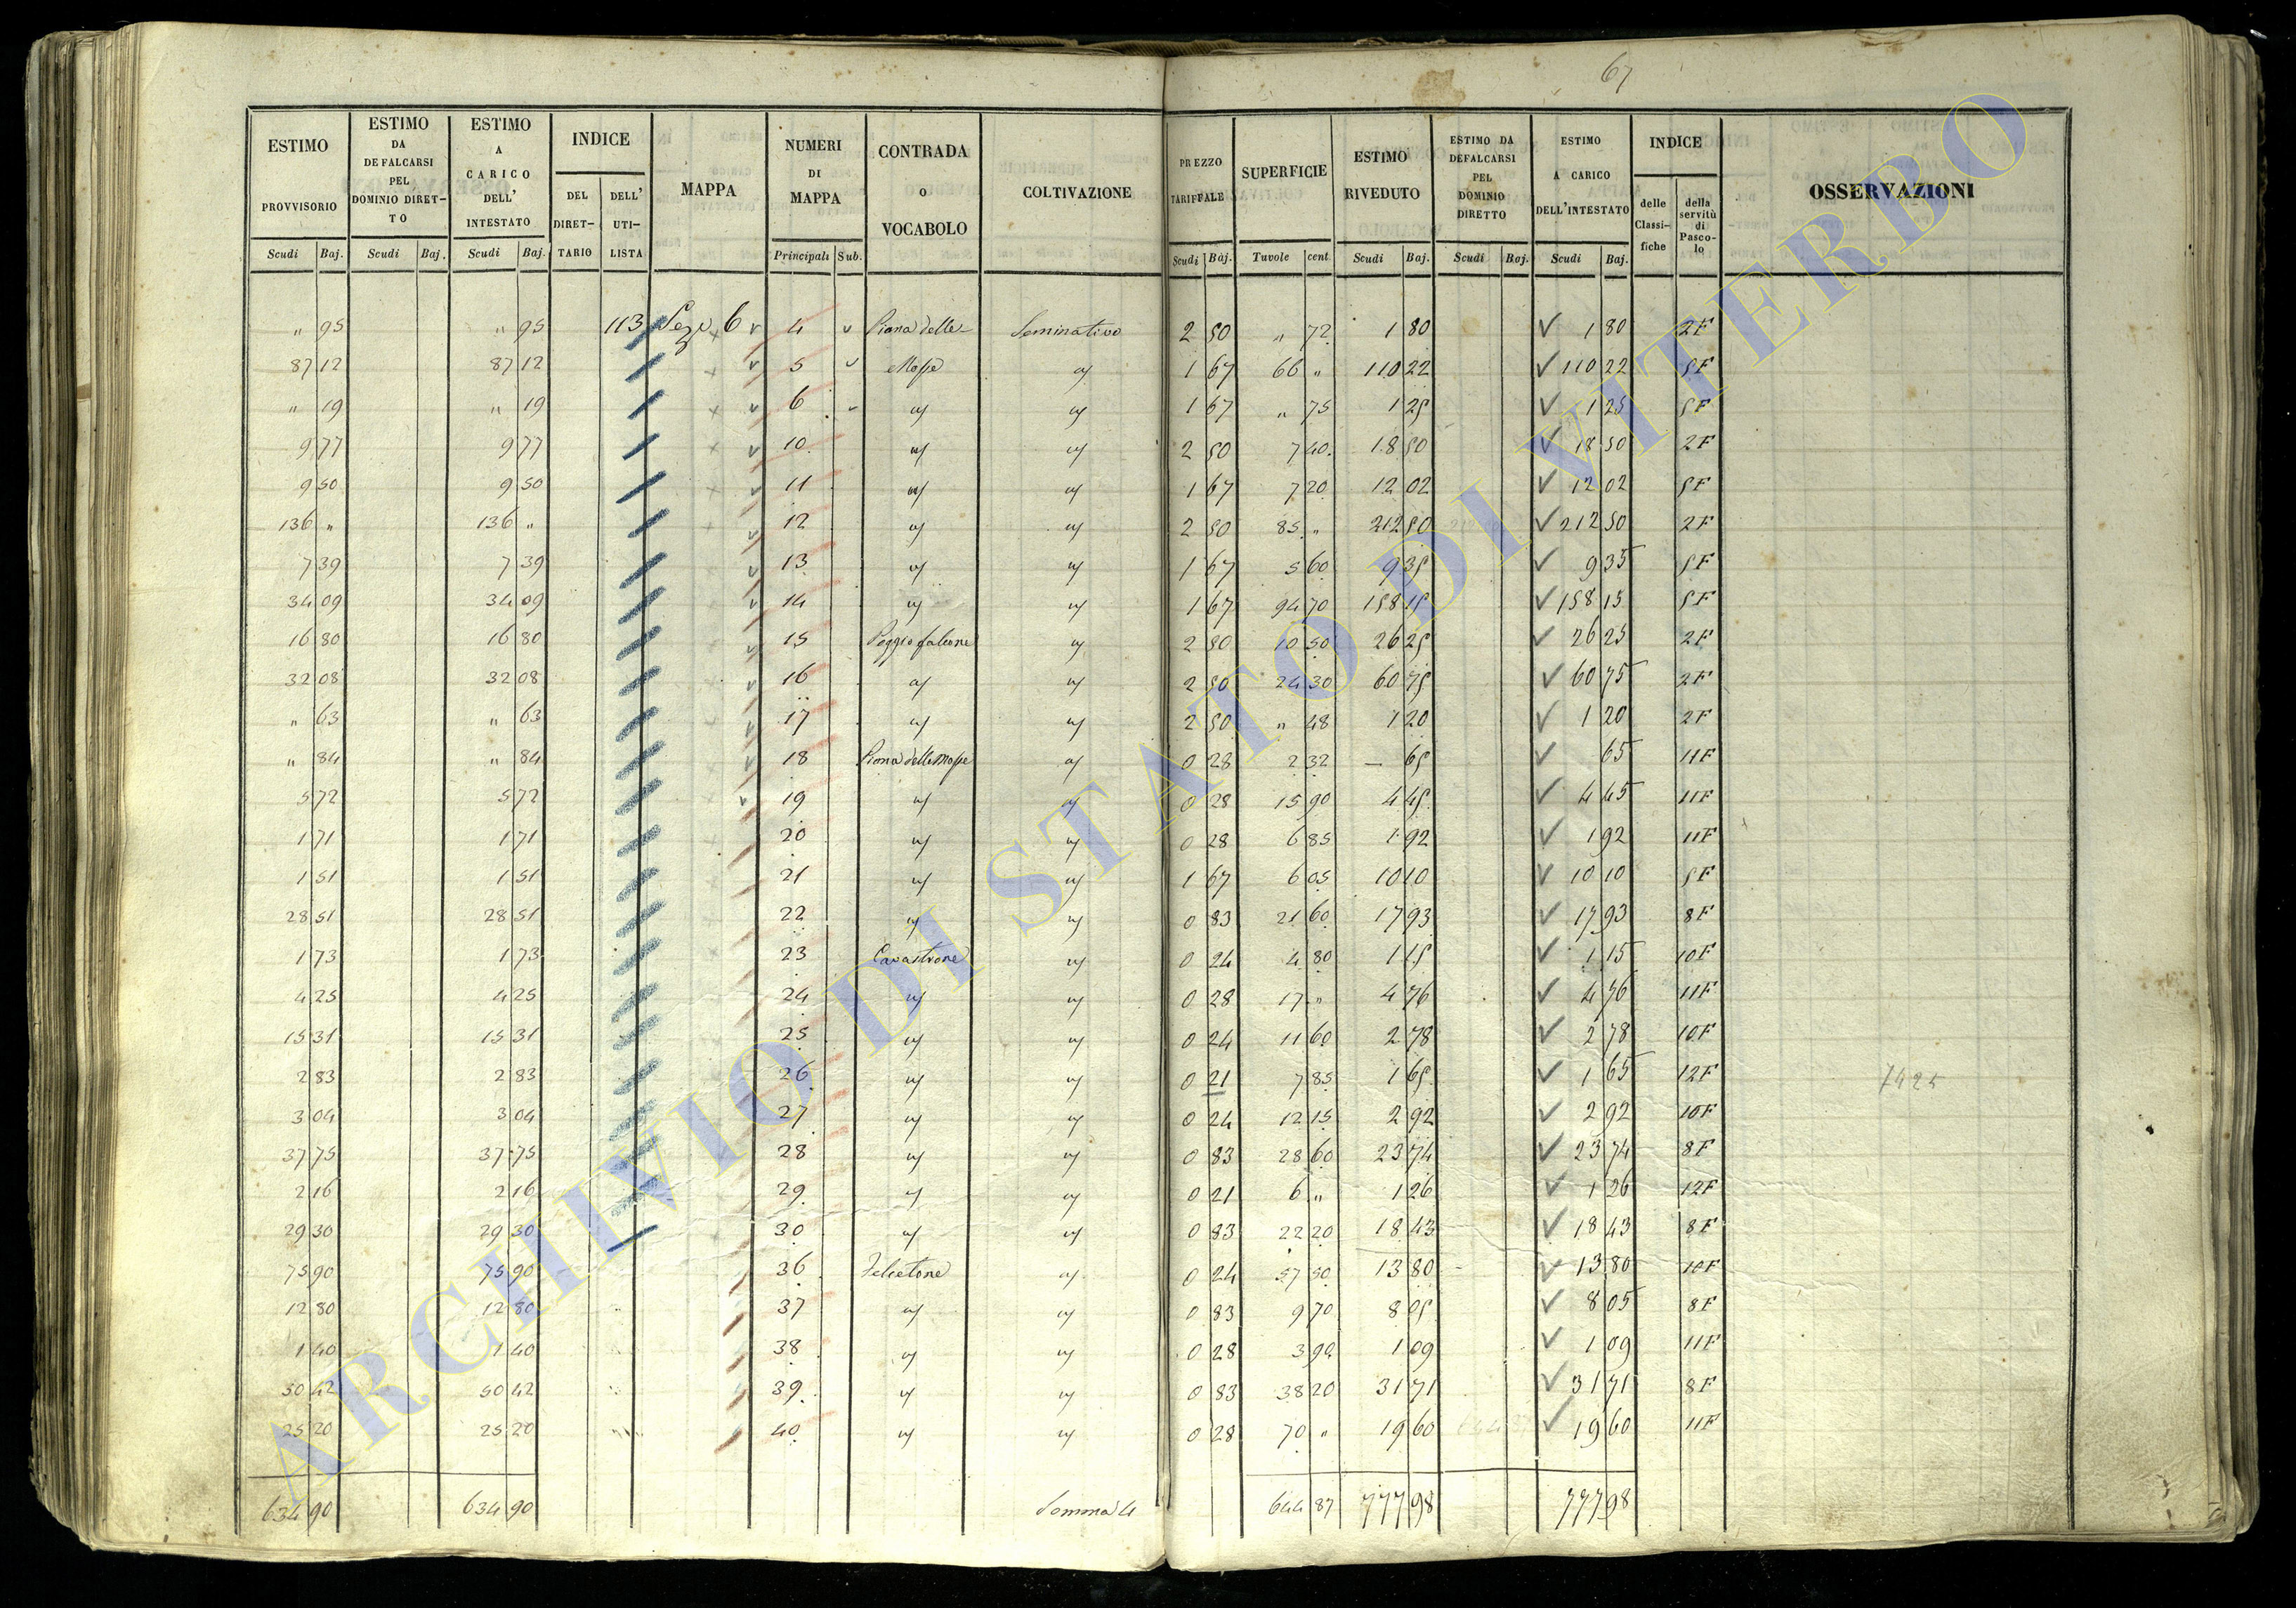 67
ESTIMO PROVVISORIO | ESTIMO DA DEFALCARSI PEL DOMINIO DIRETTO | ESTIMO A CARICO DELL' INTESTATO | INDICE | MAPPA | NUMERI DI MAPPA | CONTRADA O VOCABOLO | COLTIVAZIONE | PREZZO TARIFFALE | SUPERFICIE | ESTIMO RIVEDUTO | ESTIMO DA DEFALCARSI PEL DOMINIO DIRETTO | ESTIMO A CARICO DELL'INTESTATO | INDICE | OSSERVAZIONI
DEL DIRETTARIO | DELL' UTILISTA | delle Classifiche | della servitù di Pascolo
Scudi | Baj. | Scudi | Baj. | Scudi | Baj. | Principali | Sub. | Scudi | Baj. | Tavole | cent | Scudi | Baj. | Scudi | Baj. | Scudi | Baj.
" 95 | " 95 | 113 | Sez. 6 | 4 | Piana delle | Seminativo | 2 50 | " 72 | 1 80 | 1 80 | 2F
87 12 | 87 12 | 5 | Mosse | " | 1 67 | 66 " | 110 22 | 110 22 | 5F
" 19 | " 19 | 6 | " | " | 1 67 | " 75 | 1 25 | 1 25 | 5F
9 77 | 9 77 | 10 | " | " | 2 50 | 7 40 | 18 50 | 18 50 | 2F
9 50 | 9 50 | 11 | " | " | 1 67 | 7 20 | 12 02 | 12 02 | 5F
136 " | 136 " | 12 | " | " | 2 50 | 85 " | 212 50 | 212 50 | 2F
7 39 | 7 39 | 13 | " | " | 1 67 | 5 60 | 9 35 | 9 35 | 5F
34 09 | 34 09 | 14 | " | " | 1 67 | 94 70 | 158 15 | 158 15 | 5F
16 80 | 16 80 | 15 | Poggio falcone | " | 2 50 | 10 50 | 26 25 | 26 25 | 2F
32 08 | 32 08 | 16 | " | " | 2 50 | 24 30 | 60 75 | 60 75 | 2F
" 63 | " 63 | 17 | " | " | 2 50 | " 48 | 1 20 | 1 20 | 2F
" 84 | " 84 | 18 | Piana delle Mosse | " | 0 28 | 2 32 | — 65 | 65 | 11F
5 72 | 5 72 | 19 | " | " | 0 28 | 15 90 | 4 45 | 4 45 | 11F
1 71 | 1 71 | 20 | " | " | 0 28 | 6 85 | 1 92 | 1 92 | 11F
1 51 | 1 51 | 21 | " | " | 1 67 | 6 05 | 10 10 | 10 10 | 5F
28 51 | 28 51 | 22 | " | " | 0 83 | 21 60 | 17 93 | 17 93 | 8F
1 73 | 1 73 | 23 | Cavastrone | " | 0 24 | 4 80 | 1 15 | 1 15 | 10F
4 25 | 4 25 | 24 | " | " | 0 28 | 17 " | 4 76 | 4 76 | 11F
15 31 | 15 31 | 25 | " | " | 0 24 | 11 60 | 2 78 | 2 78 | 10F
2 83 | 2 83 | 26 | " | " | 0 21 | 7 85 | 1 65 | 1 65 | 12F
3 04 | 3 04 | 27 | " | " | 0 24 | 12 15 | 2 92 | 2 92 | 10F
37 75 | 37 75 | 28 | " | " | 0 83 | 28 60 | 23 74 | 23 74 | 8F
2 16 | 2 16 | 29 | " | " | 0 21 | 6 " | 1 26 | 1 26 | 12F
29 30 | 29 30 | 30 | " | " | 0 83 | 22 20 | 18 43 | 18 43 | 8F
75 90 | 75 90 | 36 | Felcetone | " | 0 24 | 57 50 | 13 80 | 13 80 | 10F
12 80 | 12 80 | 37 | " | " | 0 83 | 9 70 | 8 05 | 8 05 | 8F
1 40 | 1 40 | 38 | " | " | 0 28 | 3 90 | 1 09 | 1 09 | 11F
50 42 | 50 42 | 39 | " | " | 0 83 | 38 20 | 31 71 | 31 71 | 8F
25 20 | 25 20 | 40 | " | " | 0 28 | 70 " | 19 60 | 19 60 | 11F
634 90 | 634 90 | Somma | 644 87 | 777 98 | 777 98
ARCHIVIO DI STATO DI VITERBO